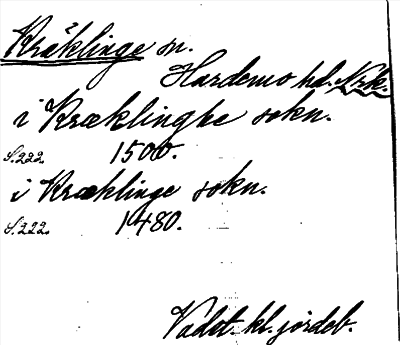 Kräklinge sn.
Hardemo hd. Nrk.
i Kræklingke sokn.
S.222. 1500.
i Kræklinge sokn.
S.222. 1480.
Vadst. kl. jordeb.